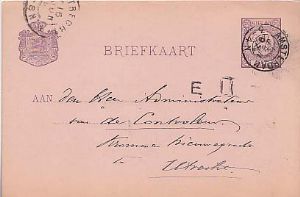 BRIEFKAART
E
AAN den Heer Administrateur
van de Controleur
Kromme Nieuwegracht
te
Utrecht
AMSTERDAM